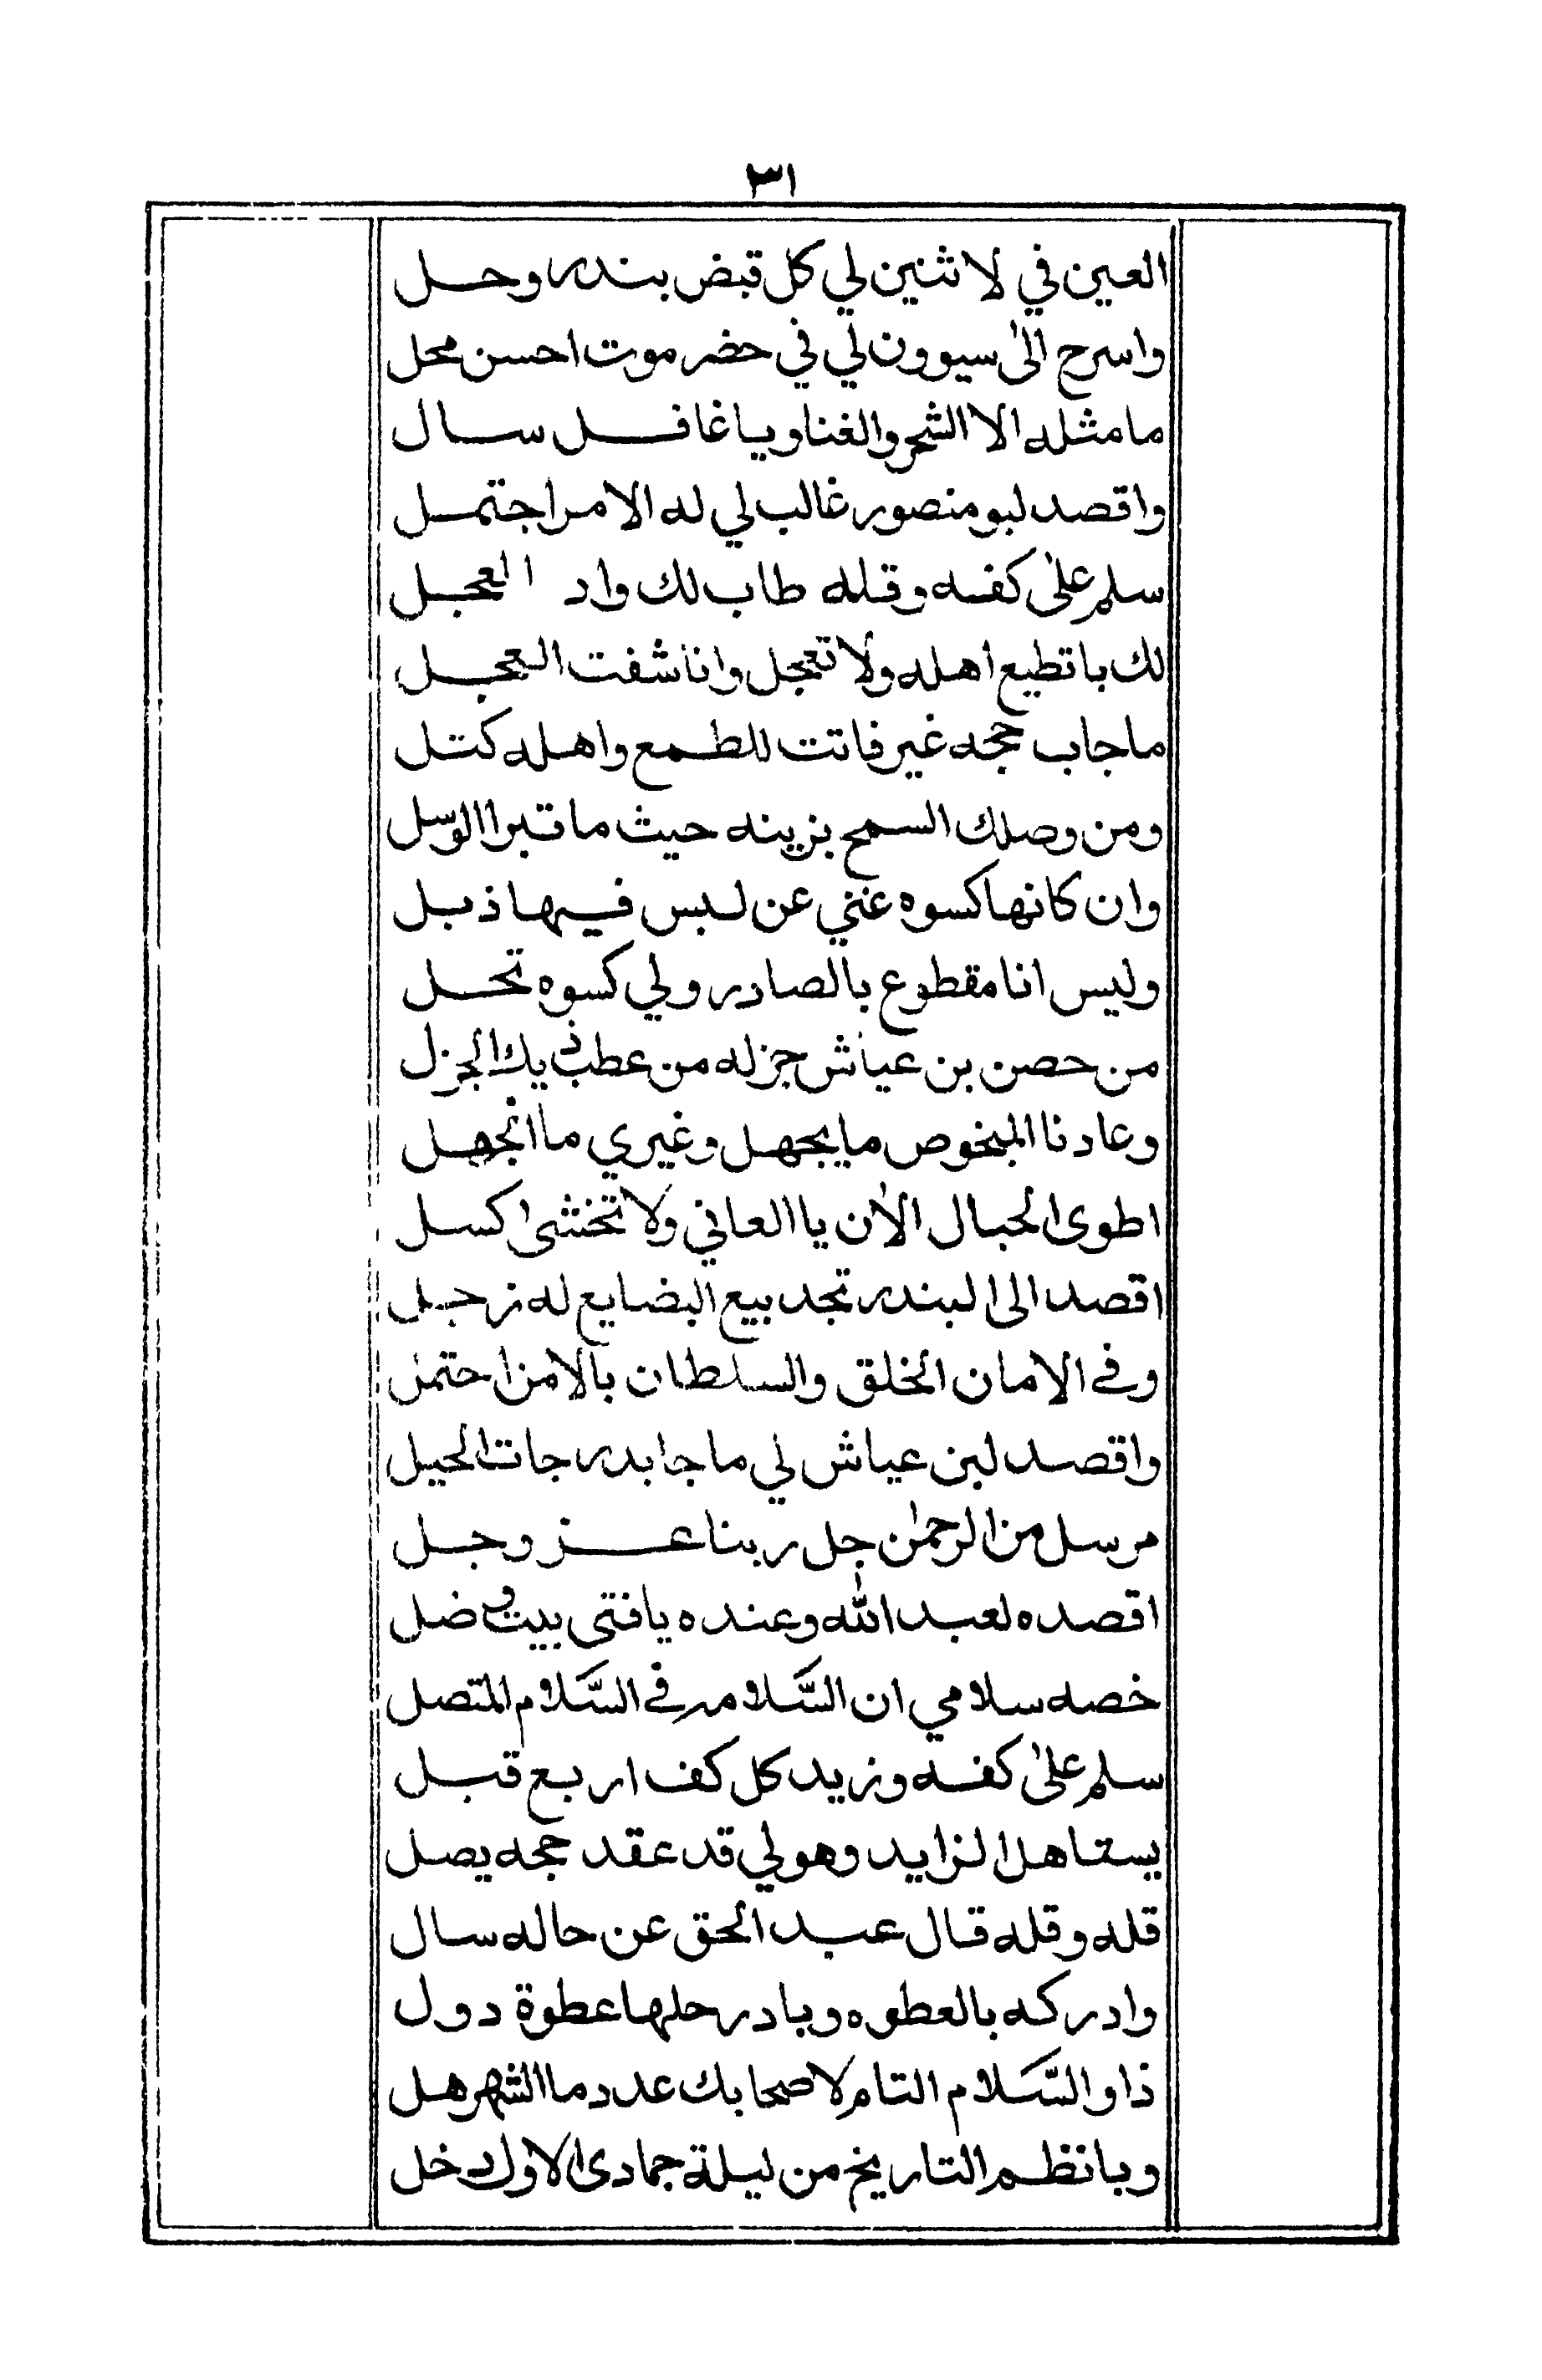 ٣١
العين في لاثنين لي كل قبض بندر وحل
واسرح الى سيوون لي في حضرموت احسن محل
ما مثله الا الشحر والغنا ويا غافل سال
واقصد لبو منصور غالب لي له الامر اجتمل
سلم على كفه وقله طاب لك واد العجل
لك با تطيع اهله ولا تعجل وانا شفت العجل
ما جاب حجه غير فاتت للطمع واهله كتل
ومن وصلك السمح بزينه حيث ما تبرا الوسل
وان كانها كسوه عنني عن لبس فيها ذبل
وليس انا مقطوع بالصادر ولي كسوه تحل
من حصن بن عياش جزله من عطب ذيك الجزل
وعادنا المبخوص ما يجهل وغيري ما انجهل
اطوى الحبال الان يا العاني ولا تخشى كسل
اقصد الى البندر تجد بيع البضايع له زجل
وفي الامان الخلق والسلطان بالامن احتمل
واقصد لبن عياش لي ما جا بدرجات الحيل
مرسل من الرحمن جل ربنا عز وجل
اقصده لعبد الله وعنده يا فتى بيت وضل
خصه سلامي ان السّلامه في السّلام المتصل
سلم على كفه وزيد كل كف اربع قبل
يستاهل الزايد وهو لي قد عقد حجه يصل
قله وقله قال عبد الحق عن حاله سال
وادركه بالعطوه وبادر حلها عطوة دول
ذا والسّلام التام لاصحابك عدد ما الشهر هل
وبا نظم التاريخ من ليلة جمادى الاول دخل